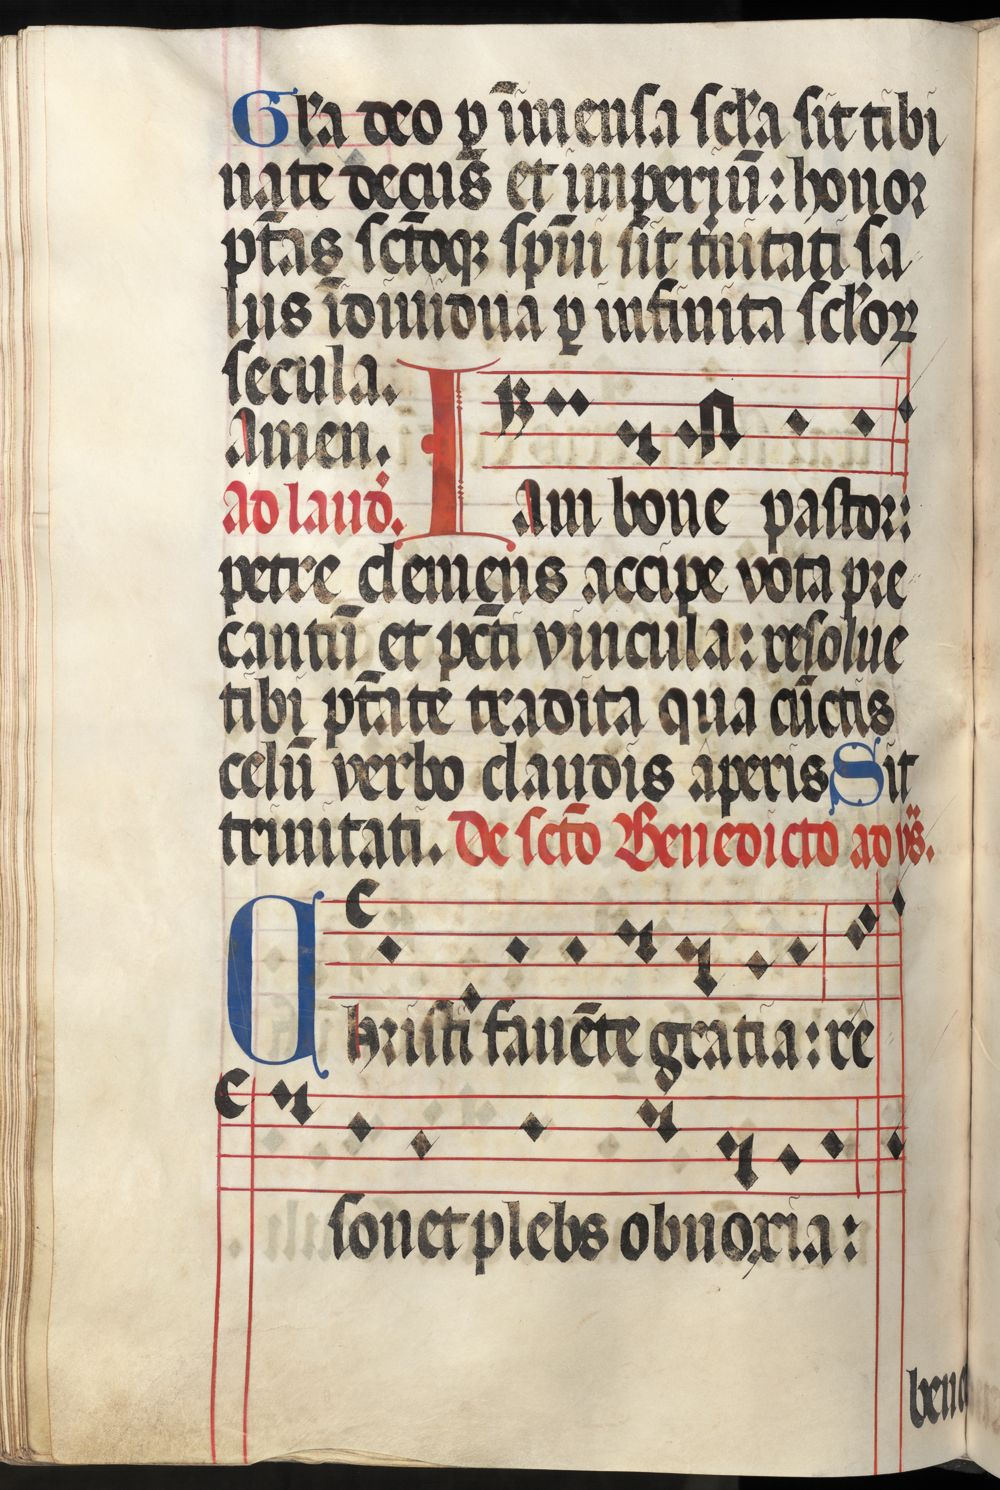 Gl̄ia deo ꝑ īmensa scl̄a sit tibi
nate decus et imperiū: honor
ptās sctōqꝫ spīui sit tinitati sa
lus īdiuidua ꝑ infinita scl̄oꝝ
secula.
Amen.
Ad laud̄.
Iam bone pastor:
petre clemens accipe vota pre
cantiū et pctī vincula: resolue
tibi ptāte tradita qua cūctis
celū verbo claudis aperis Sit
trinitati. De sctō Benedicto ad vs̄.
Christi fauēte gratia: re
sonet plebs obnoxia:
ben